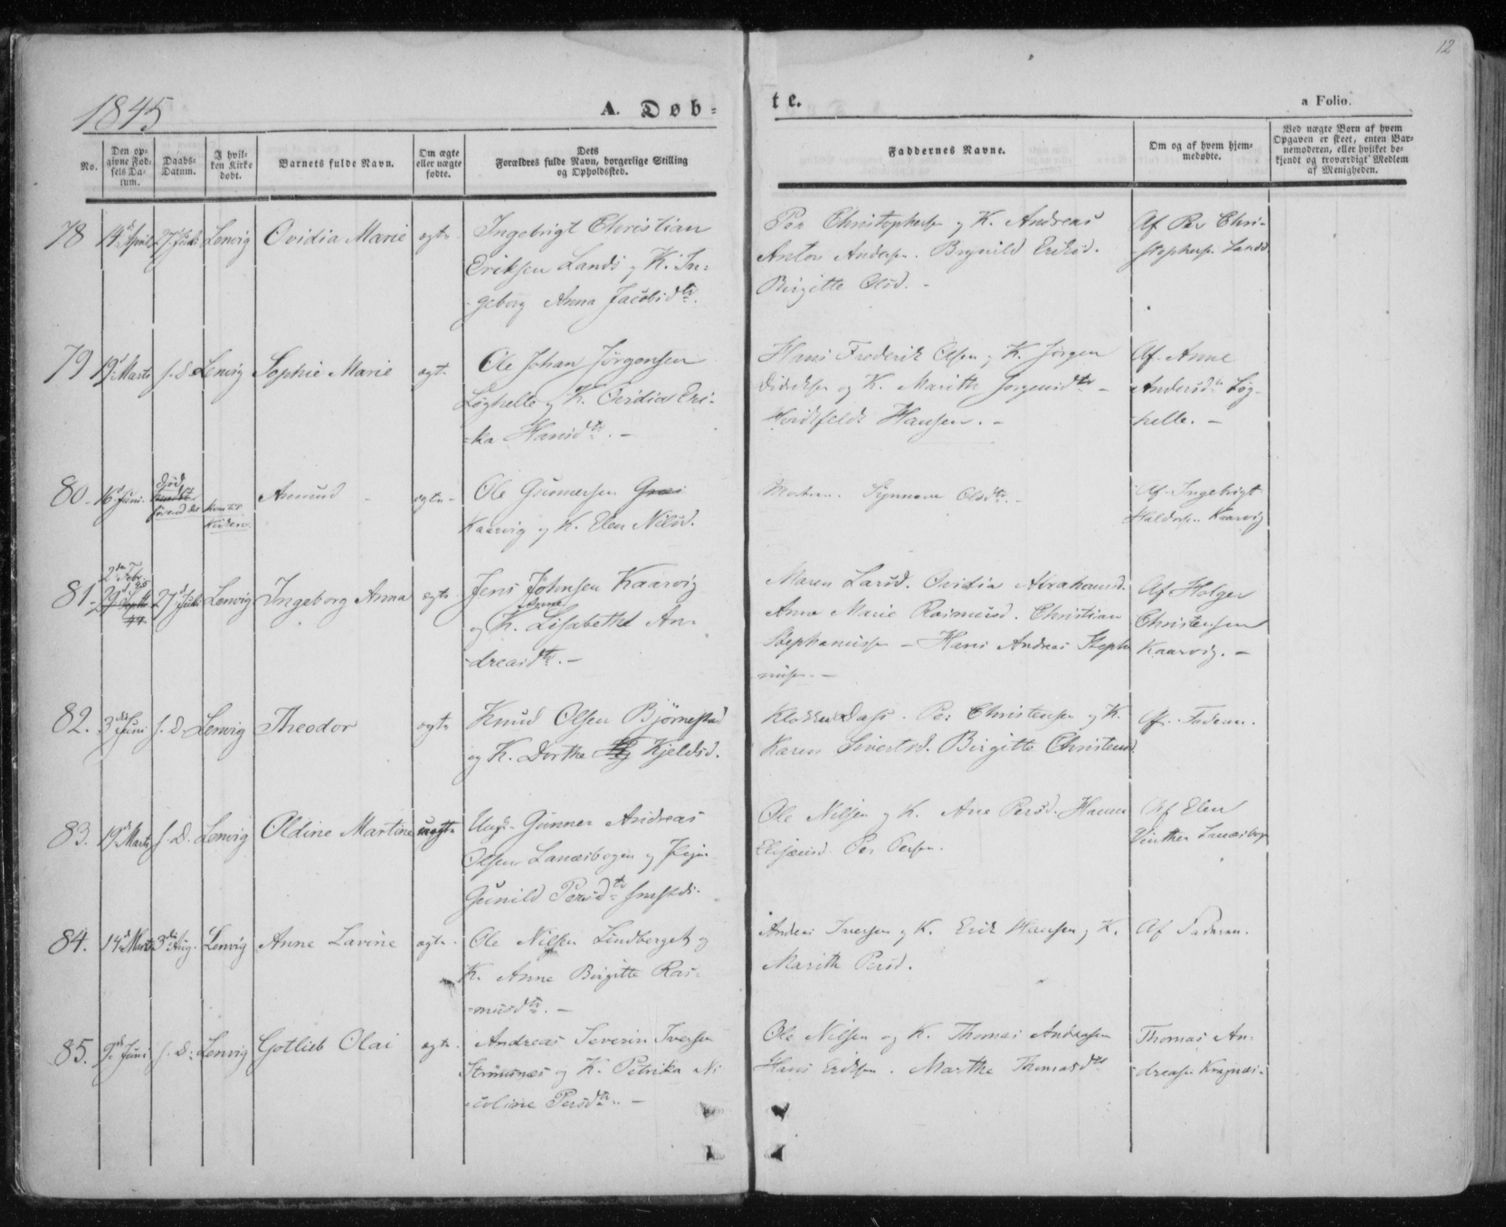 12
1845
A. Døb-
te.
a Folio.
No.
Den op-
givne Fød-
sels Da-
tum.
Daabs-
Datum.
I hvil-
ken Kirke
døbt.
Barnets fulde Navn.
Om ægte
eller uægte
fødte.
Dets
Forældres fulde Navn, borgerlige Stilling
og Opholdssted.
Faddernes Navne.
Om og af hvem hjem-
medøbte.
Ved uægte Børn af hvem
Opgaven er skeet, enten Bar-
nemoderen, eller hvilket be-
kjendt og troværdigt Medlem
af Menigheden.
78 14 April 27 Juli Lenvig Ovidia Marie ægte
Ingebrigt Christian
Eriksen Lands og K. In-
geborg Anna Jacobsdtr.
Per Christophersen og K. Andreas
Anton Andersen. Brynild Eriksd.
Birgitte Olsd. -
Af Per Chri-
stophersen Lands
79 19 Marts s. D. Lenvig Sophie Marie ægt.
Ole Johan Jørgensen
Løghelle og K. Ovidia Eri-
ka Hansdtr. -
Hans Frederik Olsen og K. Jørgen
Didriksen og K. Marith Jørgensdtr -
Hansen. -
Af Anne
Andersdtr Løg-
helle. -
80. 16 Juni. død
førend det
kom til
Kirken.
Amund - ægte -
Ole Gunnersen
Kaarvig og K. Elen Nilsd.
Synnove Olsdtr. -
Af Ingebrigt
Haldorsen Kaarvig
81. 2den Febr.
27 Juli Lenvig Ingeborg Anna ægte
Jens Johnsen Kaarvig
og K. Anna Lisabeth An-
dreasdtr. -
Maren Larsd. Ovidia Abrahamsd.
Anne Marie Rasmusd. Christian
Stephanussen - Hans Andreas Stepha
nussen. -
Af Holger
Christensen
Kaarvig. -
82. 3die Juni s. D. Lenvig Theodor ægte
Knud Olsen Bjørnestad
og K. Dorthe Kjeldsd.
Klokker Dass. Per Christensen og K.
Karen Sivertsd. Birgitte Christensd.
Af Faderen.
83. 19 Marts s. D. Lenvig Oldine Martine uægte
Ungk. Gunner Andreas
Olsen Lanæsbogen og Pige
Gunild Persdtr
Ole Nilsen og K. Ane Persd. Hanna
Elisæusd. Per Persen.
Af Elen
Winther Lanæsbogn
84. 14 Marts 3die Aug. Lenvig Anne Lavine ægte -
Ole Nilsen Lindberget og
K. Anne Birgitte Ras-
musdtr. -
Andreas Iversen og K. Erik Hansen og K.
Marith Persd.
Af Faderen.
85. 9 Juni s. D. Lenvig Gotlieb Olai ægte
Andreas Severin Iversen
Strømsnæs og K. Petrika Ni
coline Persdtr. -
Ole Nilsen og K. Thomas Andreasen
Hans Eriksen. Marthe Thomasdtr
Thomas An-
dreasen Kragnæs.